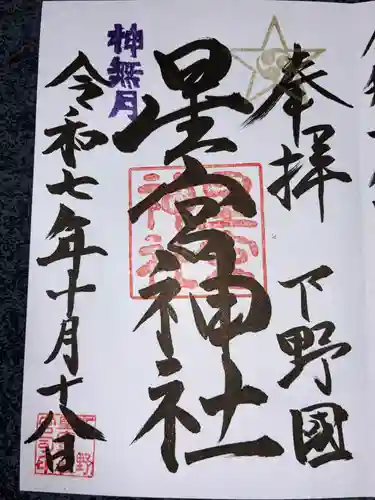 奉拝 下野國
星宮神社
神無月
令和七年十月十八日